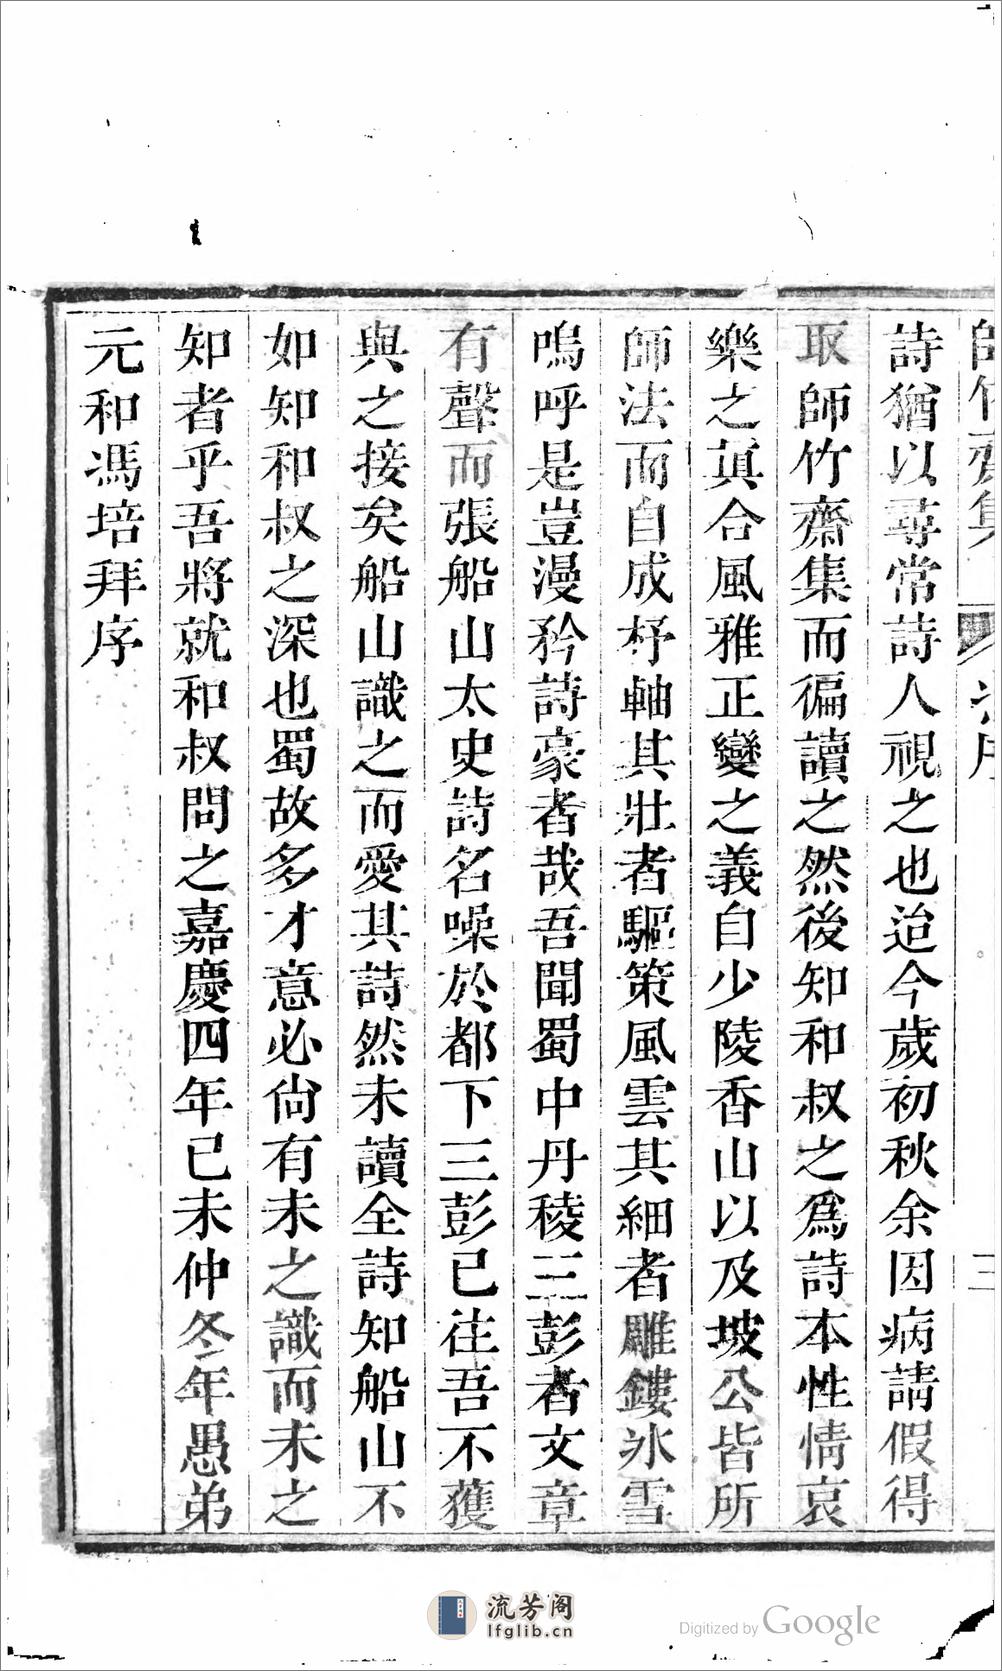 師竹齋集
序
三
詩猶以尋常詩人視之也迨今歲初秋余因病請假得
取師竹齋集而徧讀之然後知和叔之爲詩本性情哀
樂之眞合風雅正變之義自少陵香山以及坡公皆所
師法而自成杼軸其壯者驅策風雲其細者雕鏤冰雪
嗚呼是豈漫矜詩豪者哉吾聞蜀中丹稜三彭者文章
有聲而張船山太史詩名噪於都下三彭已往吾不獲
與之接矣船山識之而愛其詩然未讀全詩知船山不
如知和叔之深也蜀故多才意必尙有未之識而未之
知者乎吾將就和叔問之嘉慶四年已未仲冬年愚弟
元和馮培拜序
流芳阁
lfglib.cn
Digitized by Google